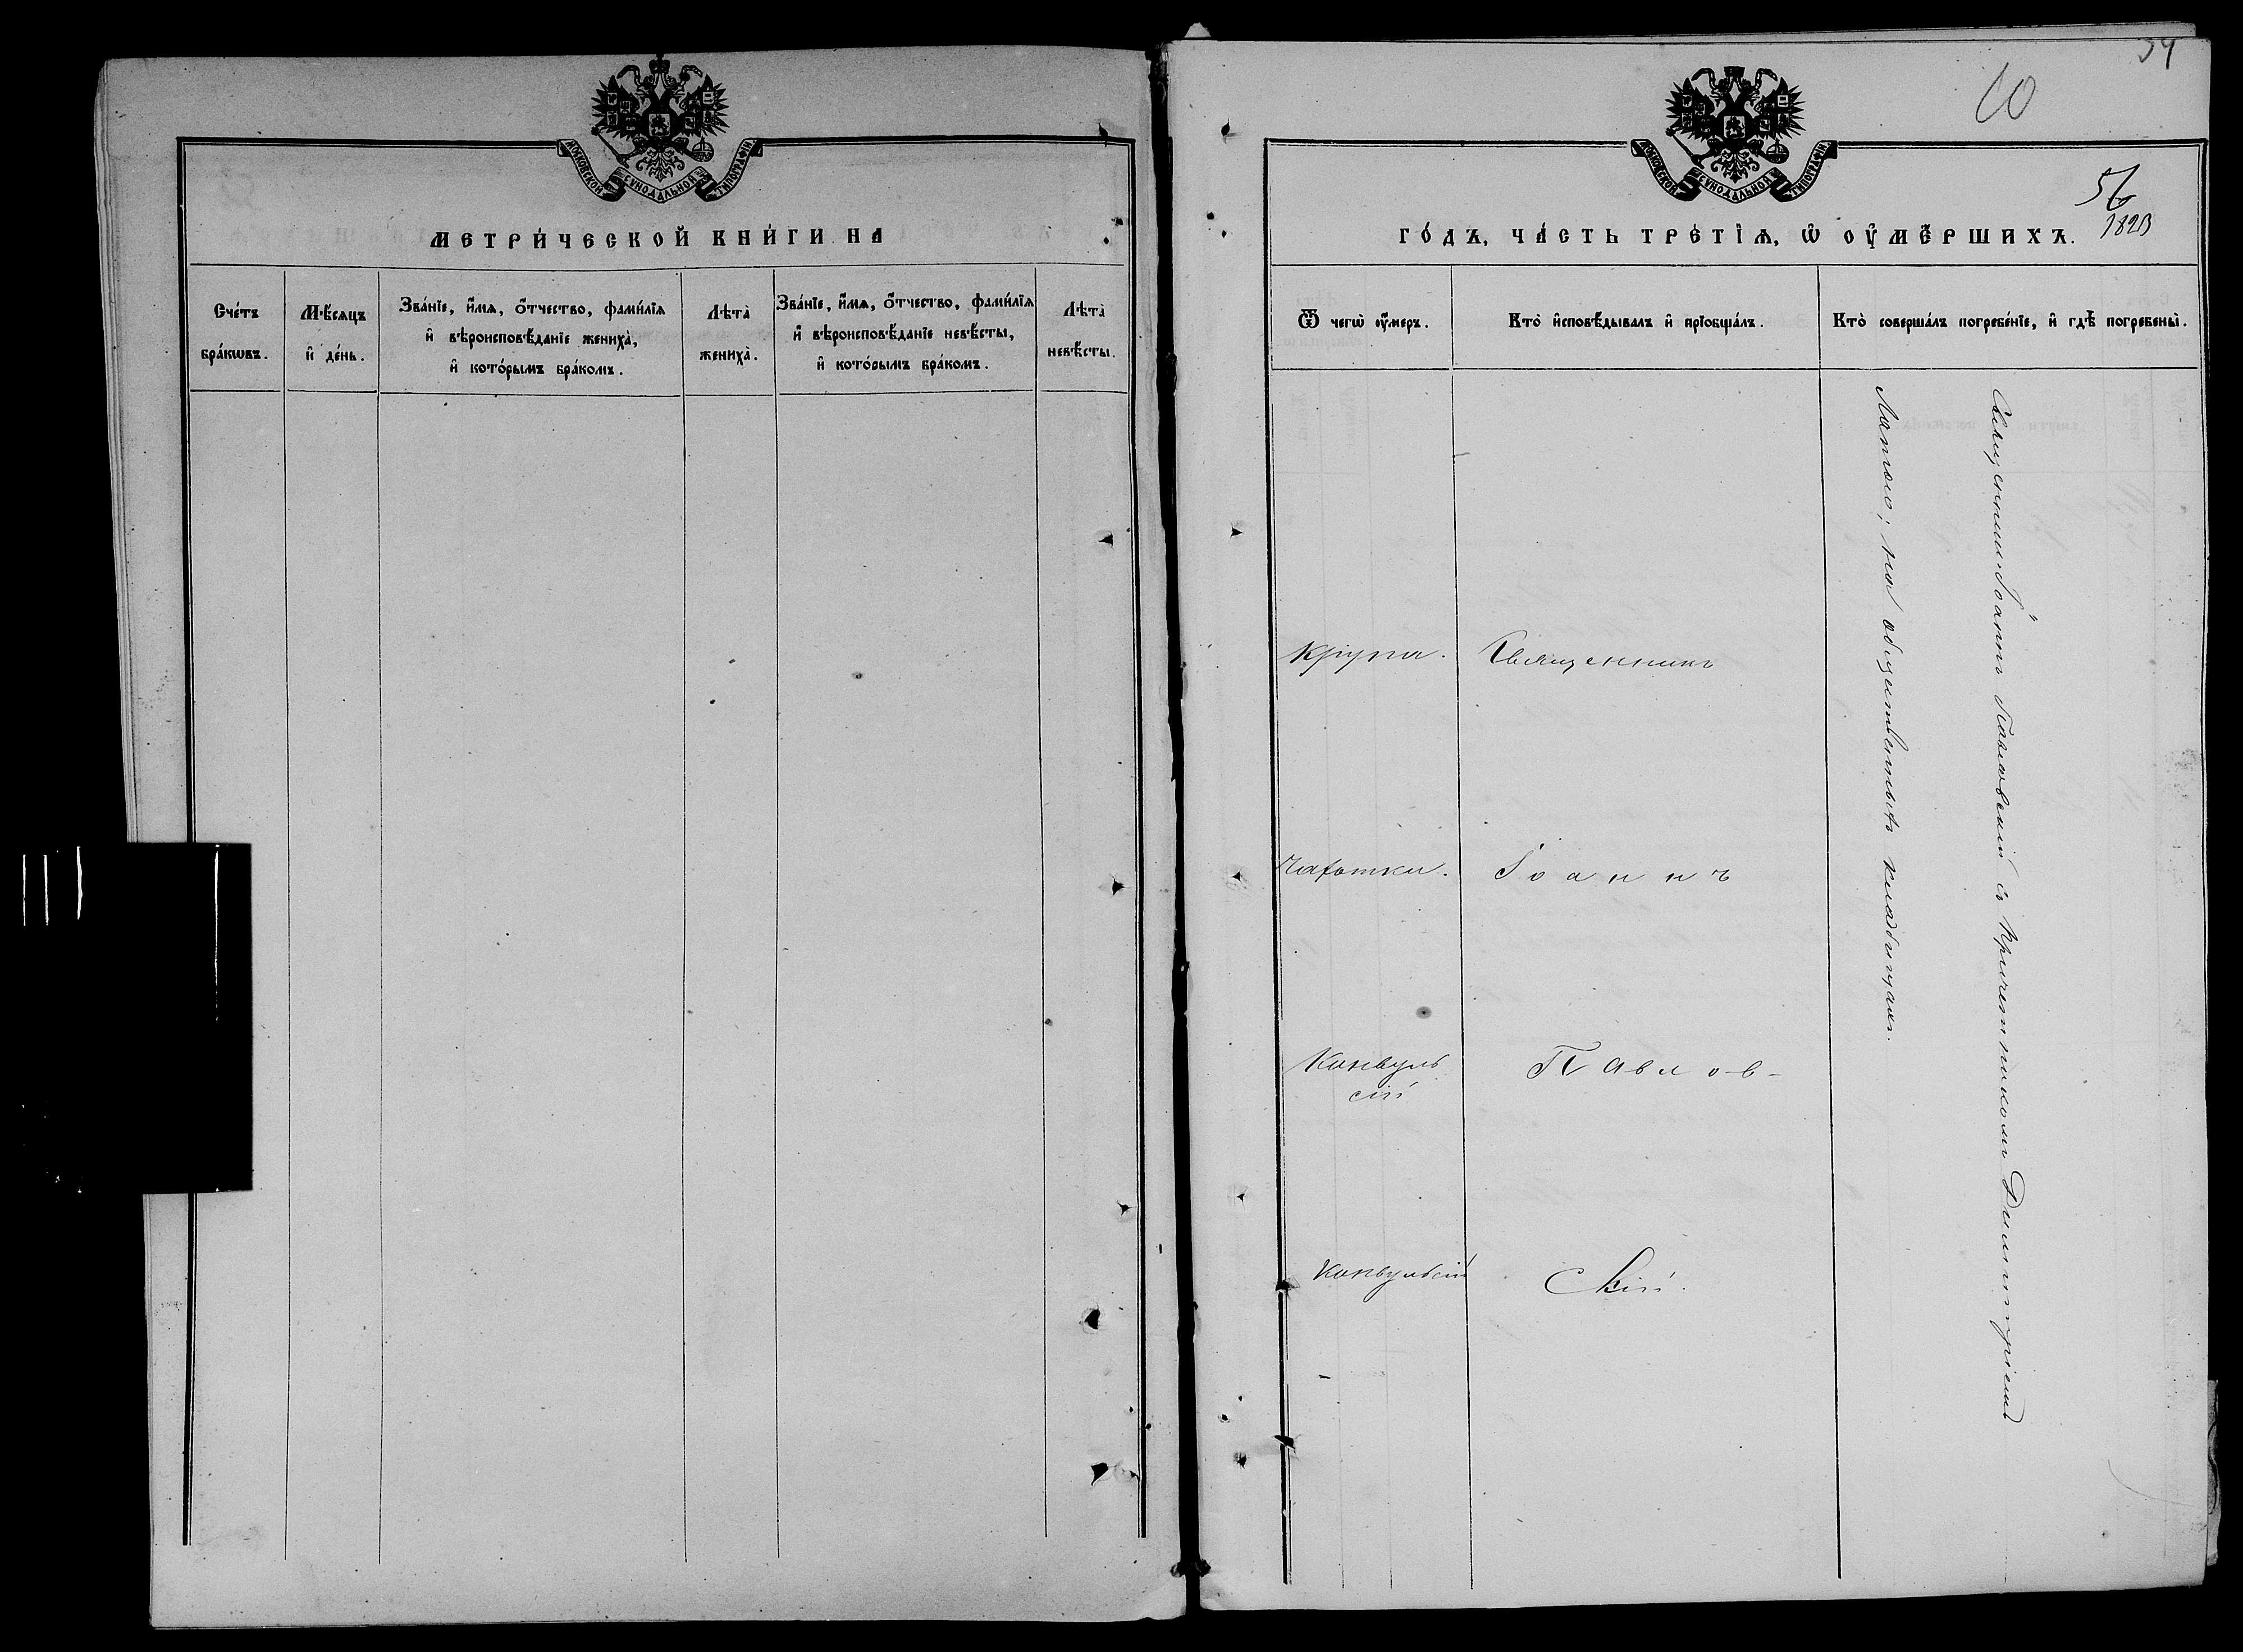 МОСКОВСКОЙ СУНОДАЛЬНОЙ ТИПОГРАФІИ
МЕТРИ́ЧЕСКОЙ КНИ́ГИ НА
Сче́тъ бра́кѡвъ.
Мѣ́сяцъ и҆ де́нь.
Зва́нїе, и҆́мѧ, ѻ҆́тчество, фами́лїѧ
и҆ вѣроисповѣ́данїе жениха̀,
и҆ кото́рымъ бра́комъ.
Лѣта̀ жениха̀.
Зва́нїе, и҆́мѧ, ѻ҆́тчество, фами́лїѧ
и҆ вѣроисповѣ́данїе невѣ́сты,
и҆ кото́рымъ бра́комъ.
Лѣта̀ невѣ́сты.
10
56
МОСКОВСКОЙ СУНОДАЛЬНОЙ ТИПОГРАФІИ
ГО́ДЪ, ЧА́СТЬ ТРЕ́ТЇѦ, Ѡ҆ ОУ҆МЕ́РШИХЪ.
Ѿ чегѡ̀ оу҆́меръ.
Кто̀ и҆сповѣ́дывалъ и҆ прїобща́лъ.
Кто̀ соверша́лъ погребе́нїе, и҆ гдѣ̀ погребены̀.
Крупа.
Священникъ
Чахотки.
Іоаннъ
Конвуль
сій
Павлов-
Конвульсій
Скій.
Священникъ Іоаннъ Павловскій съ Причетникомъ Димитріемъ
на общественныхъ кладбищахъ.